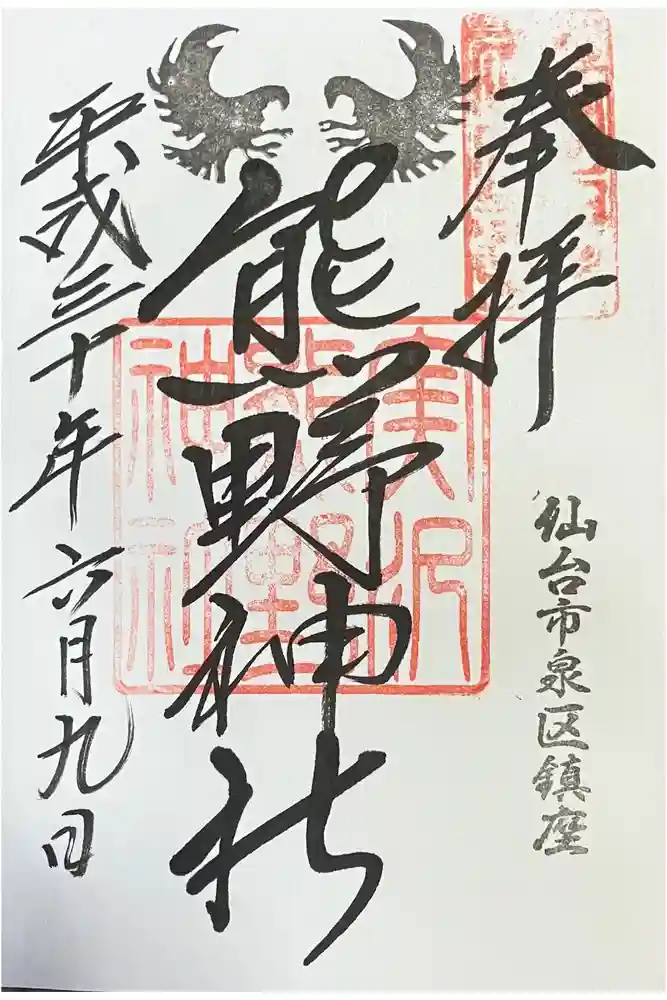 奉拝
仙台市泉区鎮座
熊野神社
平成三十年六月九日
実沢
熊野
神社